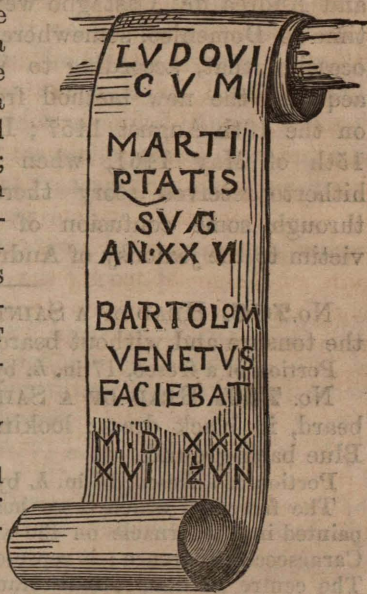 LVDOVI
CVM
MARTI
PTATIS
SVÆ
AN·XX VI
BARTOLOM
VENETVS
FACIEBAT
M·D XXX
XVI ZVN